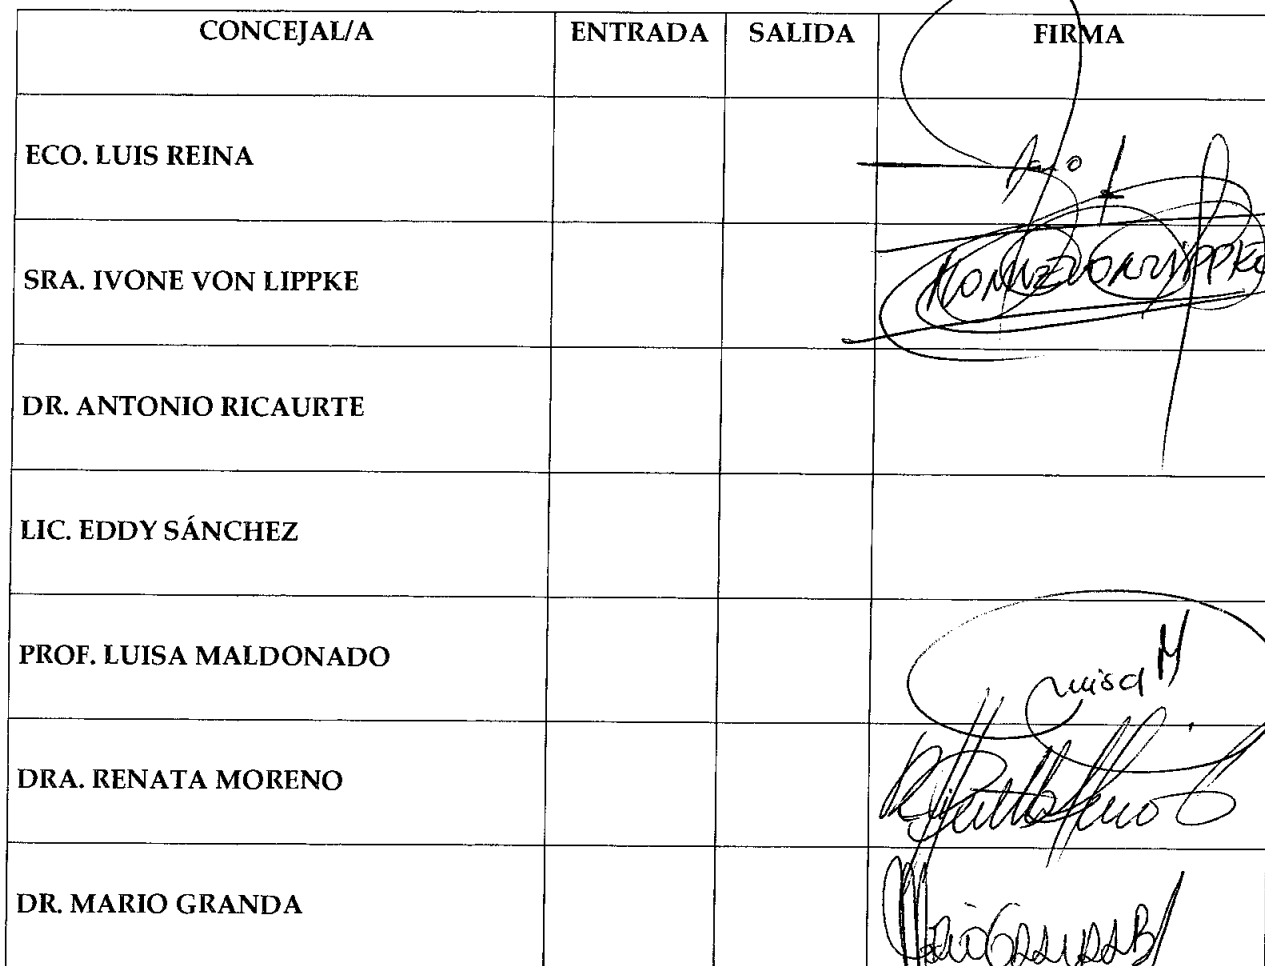 CONCEJAL/A ENTRADA SALIDA FIRMA
ECO. LUIS REINA
SRA. IVONE VON LIPPKE IVONNE VON LIPPKE
DR. ANTONIO RICAURTE
LIC. EDDY SÁNCHEZ
PROF. LUISA MALDONADO Luisa M
DRA. RENATA MORENO
DR. MARIO GRANDA